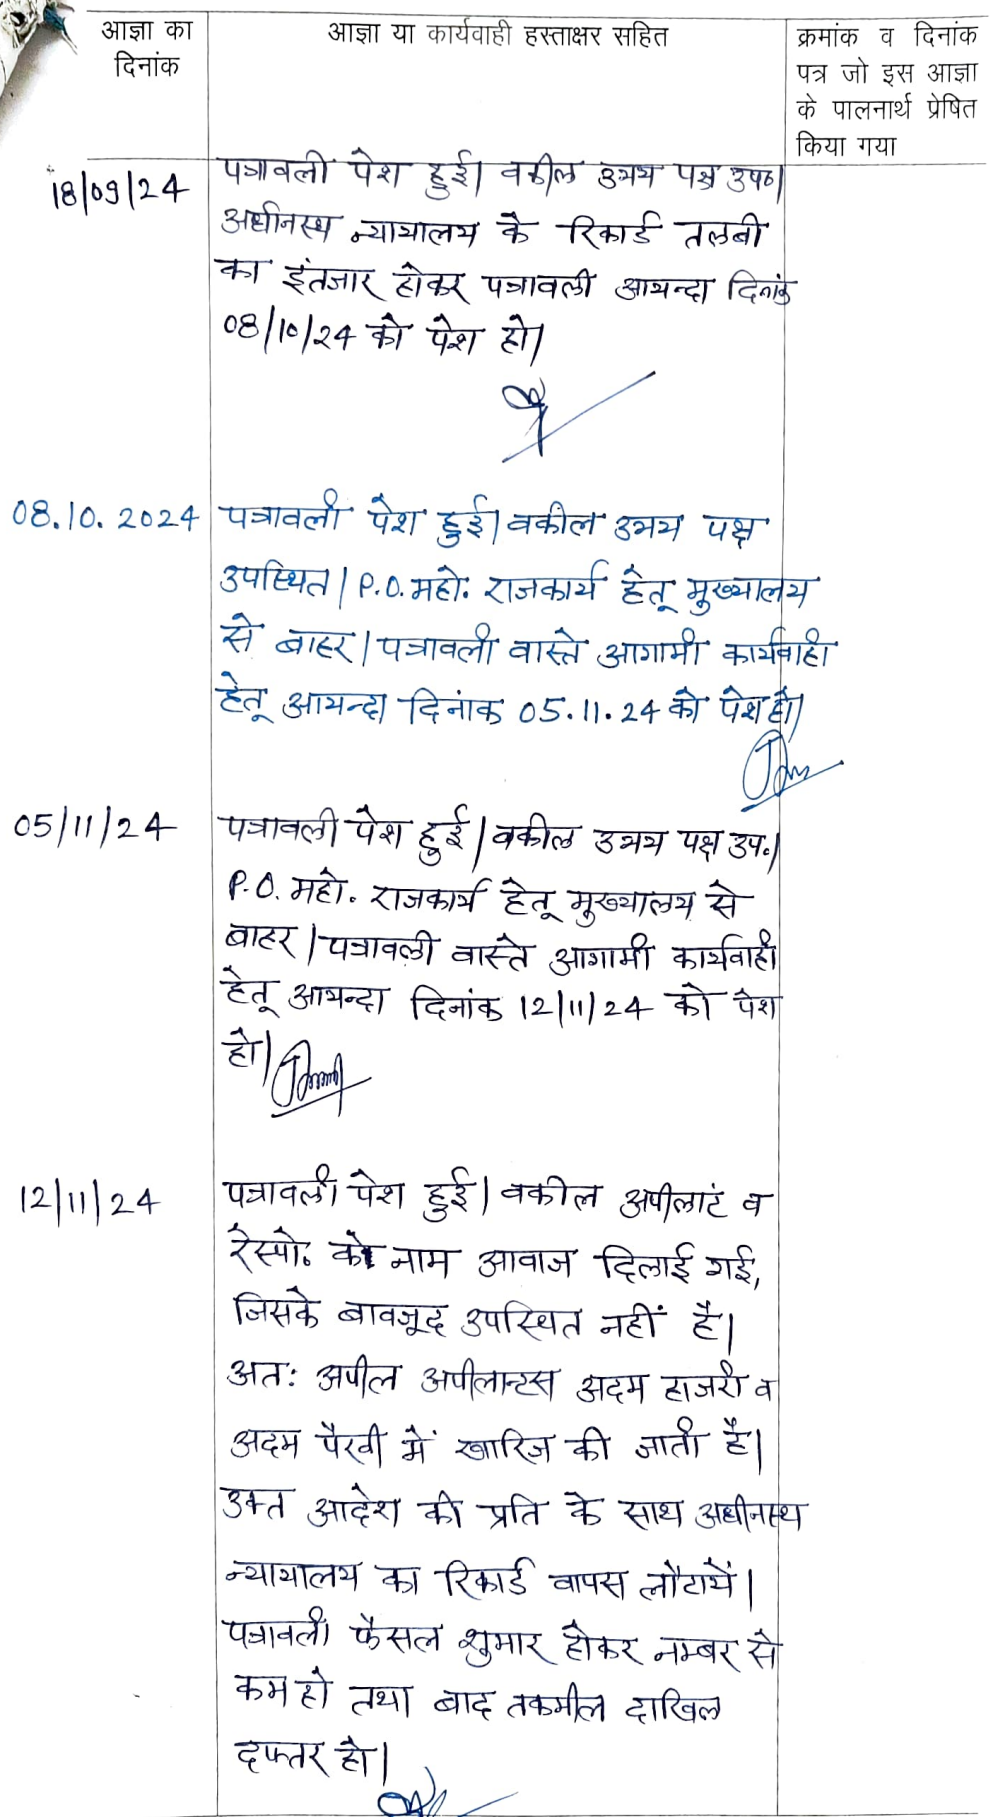 आज्ञा का
दिनांक
आज्ञा या कार्यवाही हस्ताक्षर सहित
क्रमांक व दिनांक
पत्र जो इस आज्ञा
के पालनार्थ प्रेषित
किया गया
18/09/24
पत्रावली पेश हुई। वकील उभय पक्ष उप०।
अधीनस्थ न्यायालय के रिकार्ड तलबी
का इंतजार होकर पत्रावली आयन्दा दिनांक
08/10/24 को पेश हो।
08.10.2024
पत्रावली पेश हुई। वकील उभय पक्ष
उपस्थित। P.O. महो. राजकार्य हेतू मुख्यालय
से बाहर। पत्रावली वास्ते आगामी कार्यवाही
हेतू आयन्दा दिनांक 05.11.24 को पेश हो।
05/11/24
पत्रावली पेश हुई। वकील उभय पक्ष उप.।
P.O. महो. राजकार्य हेतू मुख्यालय से
बाहर। पत्रावली वास्ते आगामी कार्यवाही
हेतू आयन्दा दिनांक 12/11/24 को पेश
हो।
12/11/24
पत्रावली पेश हुई। वकील अपीलांट व
रेस्पो. को नाम आवाज दिलाई गई,
जिसके बावजूद उपस्थित नहीं है।
अतः अपील अपीलान्टस अदम हाजरी व
अदम पैरवी में खारिज की जाती है।
उक्त आदेश की प्रति के साथ अधीनस्थ
न्यायालय का रिकार्ड वापस लौटायें।
पत्रावली फैसल शुमार होकर नम्बर से
कम हो तथा बाद तकमील दाखिल
दफ्तर हो।